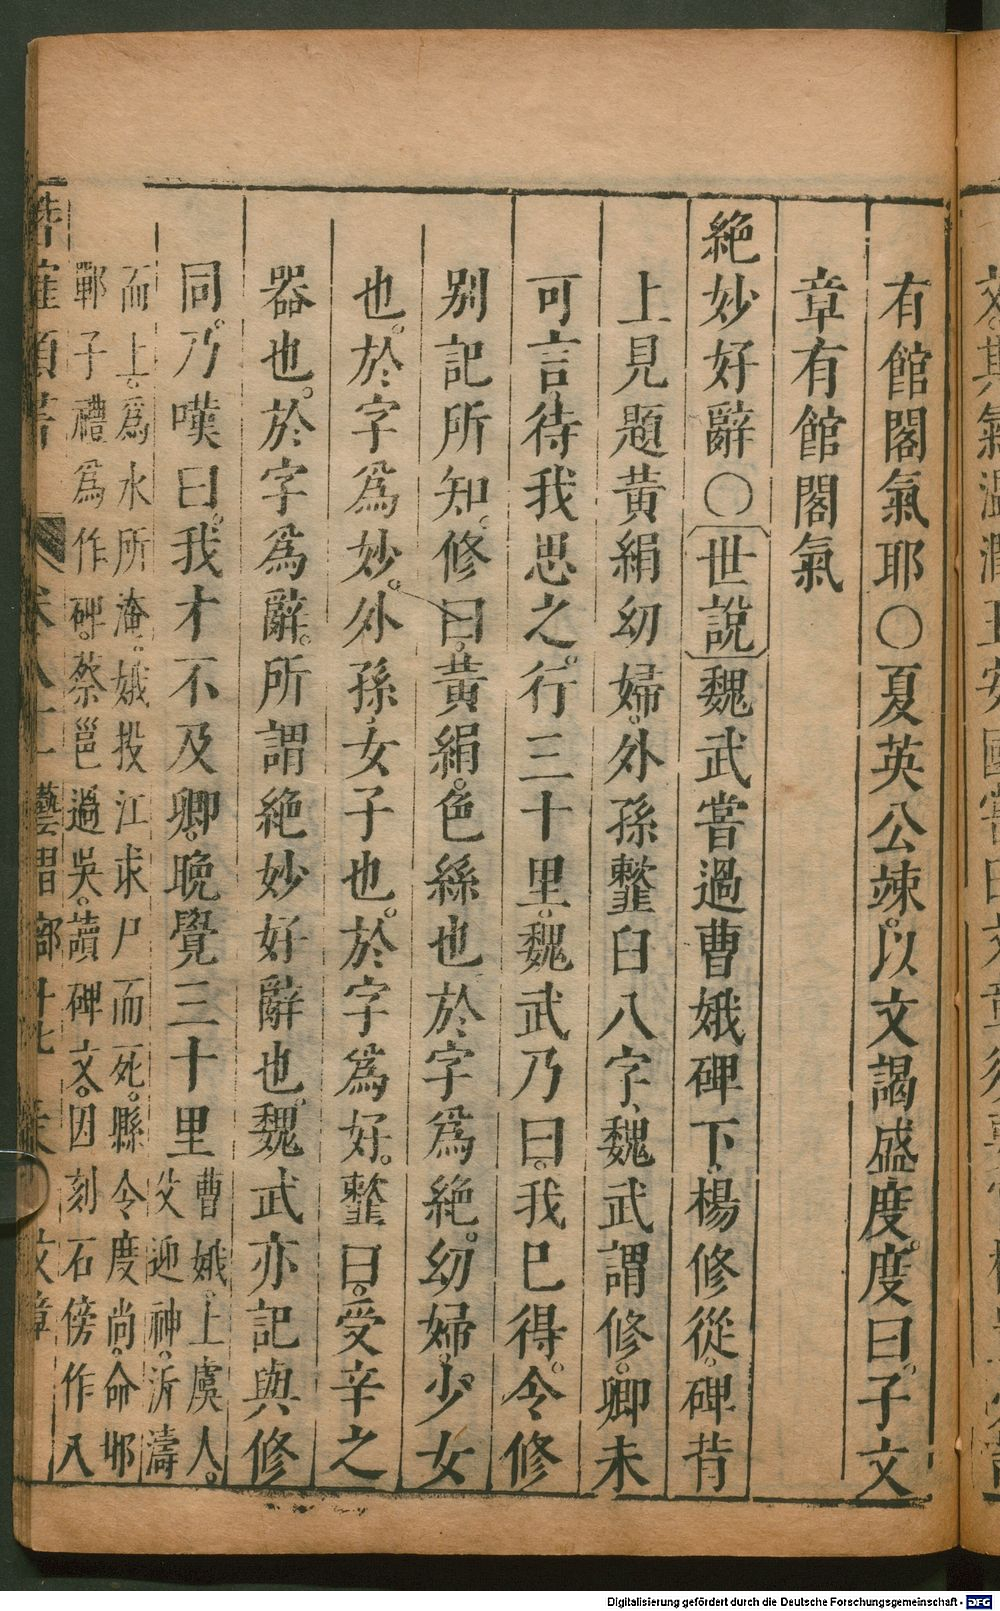 有館閣氣耶○夏英公竦。以文謁盛度。度曰。子文
章有館閣氣
絶妙好辭○世說魏武嘗過曹娥碑下、楊修從。碑背
上見題黃絹幼婦。外孫虀臼八字、魏武謂修。卿未
可言、待我思之。行三十里。魏武乃曰。我已得。令修
别記所知。修曰。黃絹。色絲也於字爲絶。幼婦。少女
也。於字爲妙。外孫、女子也。於字爲好。虀臼。受辛之
器也。於字爲辭。所謂絶妙好辭也。魏武亦記與修
同。乃嘆曰。我才不及卿。晚覺三十里
曹娥。上虞人。
父迎神。泝濤
而上。爲水所淹。娥投江求尸而死。縣令度尚。命邯
鄲子禮爲作碑。蔡邕過吳。讀碑文。因刻石傍作八
卷八十 藝習部 文章
Digitalisierung gefördert durch die Deutsche Forschungsgemeinschaft - DFG